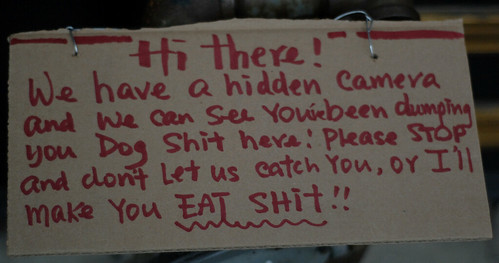 Hi there!
We have a hidden camera
and we can see You've been dumping
you Dog Shit here! Please STOP
and don't Let us catch You, or I'll
make You EAT SHit!!